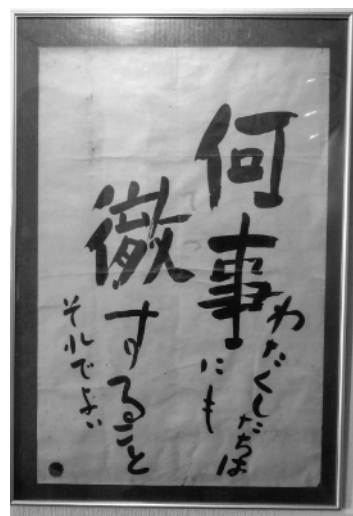 わたくしたちは
何事にも
徹すること
それでよい